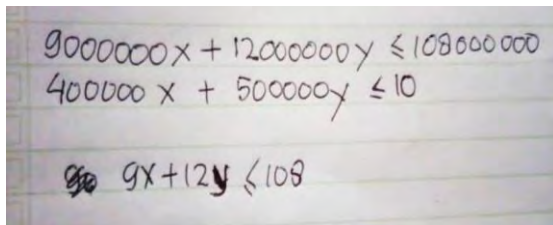 9000000x + 12000000y ≤ 108000000
400000 x + 500000y ≤ 10
9x+12y ≤ 108